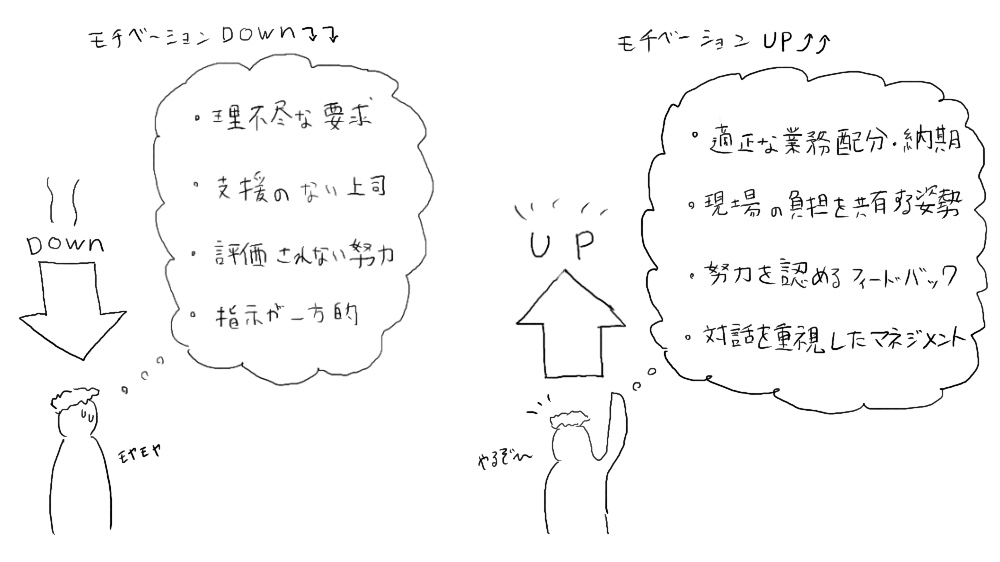 モチベーション DOWN↴↴
・理不尽な要求
・支援のない上司
・評価されない努力
・指示が一方的
DOWN
モヤモヤ
モチベーション UP⤴⤴
・適正な業務配分・納期
・現場の負担を共有する姿勢
・努力を認めるフィードバック
・対話を重視したマネジメント
UP
やるぞ〜